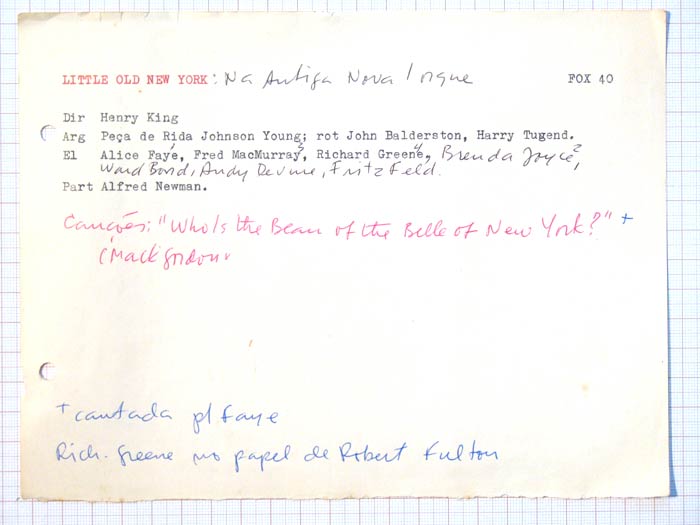 LITTLE OLD NEW YORK: Na Antiga Nova Iorque FOX 40
Dir Henry King
Arg Peça de Rida Johnson Young; rot John Balderston, Harry Tugend.
El Alice Faye, Fred MacMurray, Richard Greene, Brenda Joyce,
Ward Bond, Andy Devine, Fritz Feld.
Part Alfred Newman.
Canções: "Who Is the Beau of the Belle of New York?" +
(Mack Gordon
+ cantada p/ Faye
Rich. Greene no papel de Robert Fulton